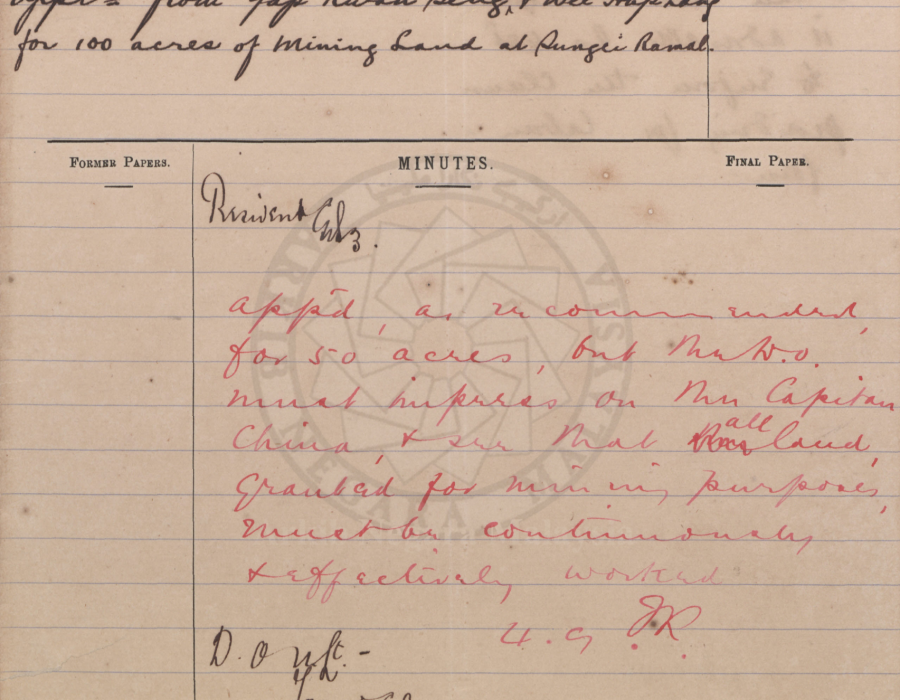 from Yap Kwan Seng, &
for 100 acres of Mining Land at Sungei Ramal.
FORMER PAPERS.
MINUTES.
FINAL PAPER.
Resident
app'd, as recommended,
for 50 acres, but the D.O.
must impress on the Capitan
China, & see that all land,
granted for mining purposes,
must be continuously
& effectively worked
4.9
D.O